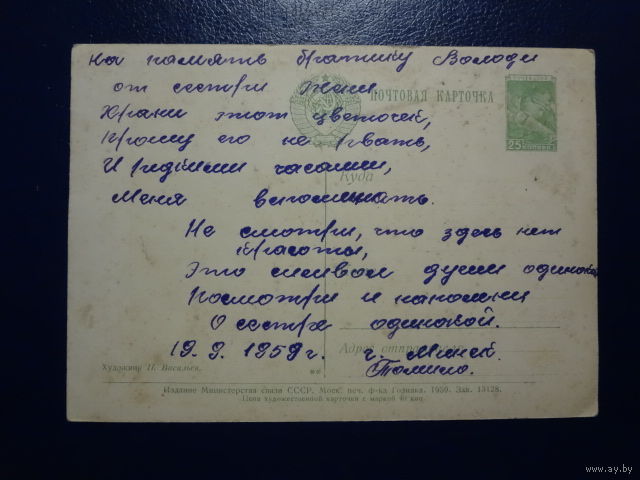 На память братику Володи
от сестри Жени
ПОЧТОВАЯ КАРТОЧКА
25 КОПЕЕК
Храни этот цветочек,
Прошу его не рвать,
И редкими часами,
Куда
Меня вспоминать.
Не смотри, что здесь нет
красоты,
Это символ души одинокой
Посмотри и напомни
О сестре одинокой.
19.9.1959 г. г. Минск.
Адрес отправителя
Художник П. Васильев.
Издание Министерства связи СССР. Моск. печ. ф-ка Гознака. 1959. Зак. 13128.
Цена художественной карточки с маркой 40 коп.
www.ay.by